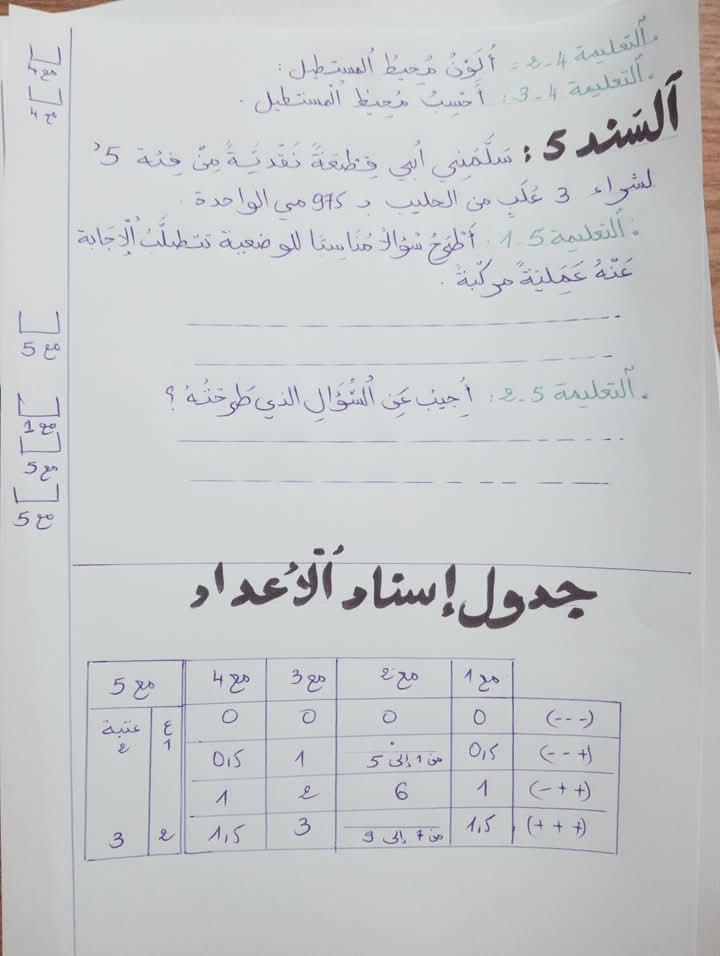 التعليمة 4-2: أُلَوِّنُ مُحِيطَ المستطيل: مع 4
التعليمة 4-3: أَحْسِبُ مُحِيطَ الْمستطيل. مع 4
السَند 5: سَلَّمَنِي أَبِي قِطْعَةً نَقْدِيَّةً مِنْ فِئة 5
لشراء 3 عُلَبٍ من الحليب بـ 975 مي الواحدة.
التعليمة 5-1: أَطْرَحُ سُؤَالًا مُنَاسِبًا للوضعية تتطلَّبُ الْإجابة
عَنْهُ عَمَلِيَّةً مركّبةً.
مع 5
التعليمة 5-2: أُجِيبُ عَنِ السُّؤَالِ الذي طَرَحْتُهُ؟
مع 1
مع 5
مع 5
جدول إسناد الْأعداد
مع 1 مع 2 مع 3 مع 4 مع 5
(---) 0 0 0 0 ع 1 عتبة 2
(--+) 0,5 من 1 إلى 5 1 0,5
(-++) 1 6 2 1
(+++) 1,5 من 7 إلى 9 3 1,5 2 3